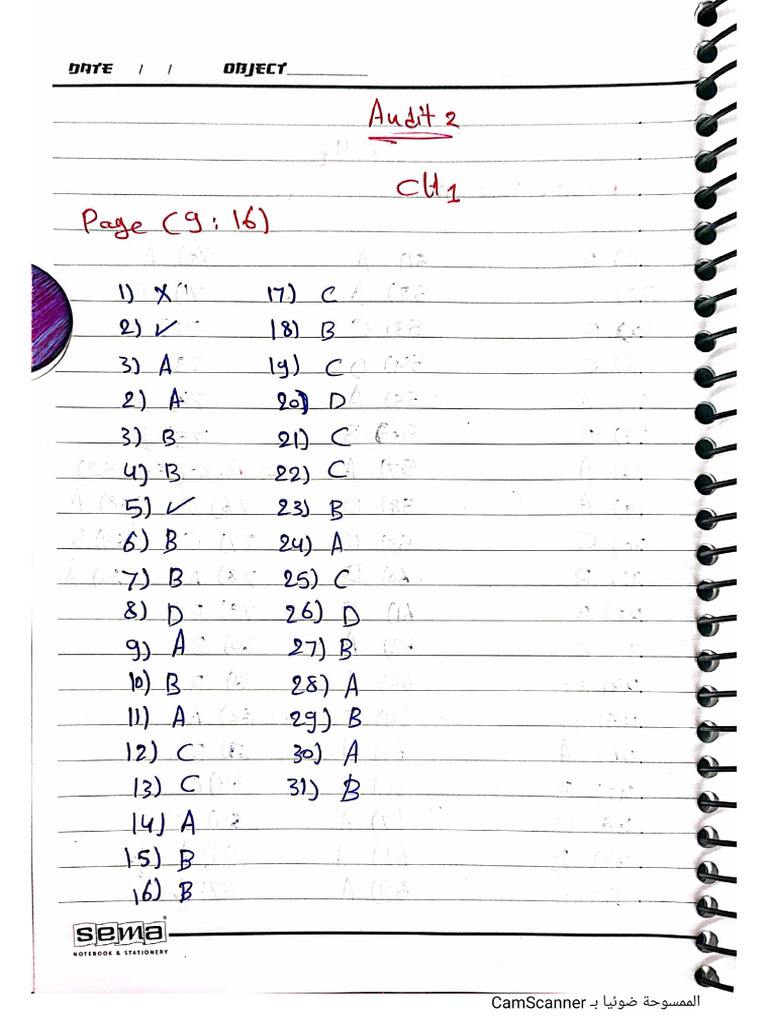 DATE / / OBJECT
Audit 2
CH1
Page (9:16)
1) X
2) ✓
3) A
2) A
3) B
4) B
5) ✓
6) B
7) B
8) D
9) A
10) B
11) A
12) C
13) C
14) A
15) B
16) B
17) C
18) B
19) C
20) D
21) C
22) C
23) B
24) A
25) C
26) D
27) B
28) A
29) B
30) A
31) B
sema
NOTEBOOK & STATIONERY
الممسوحة ضوئيا بـ CamScanner